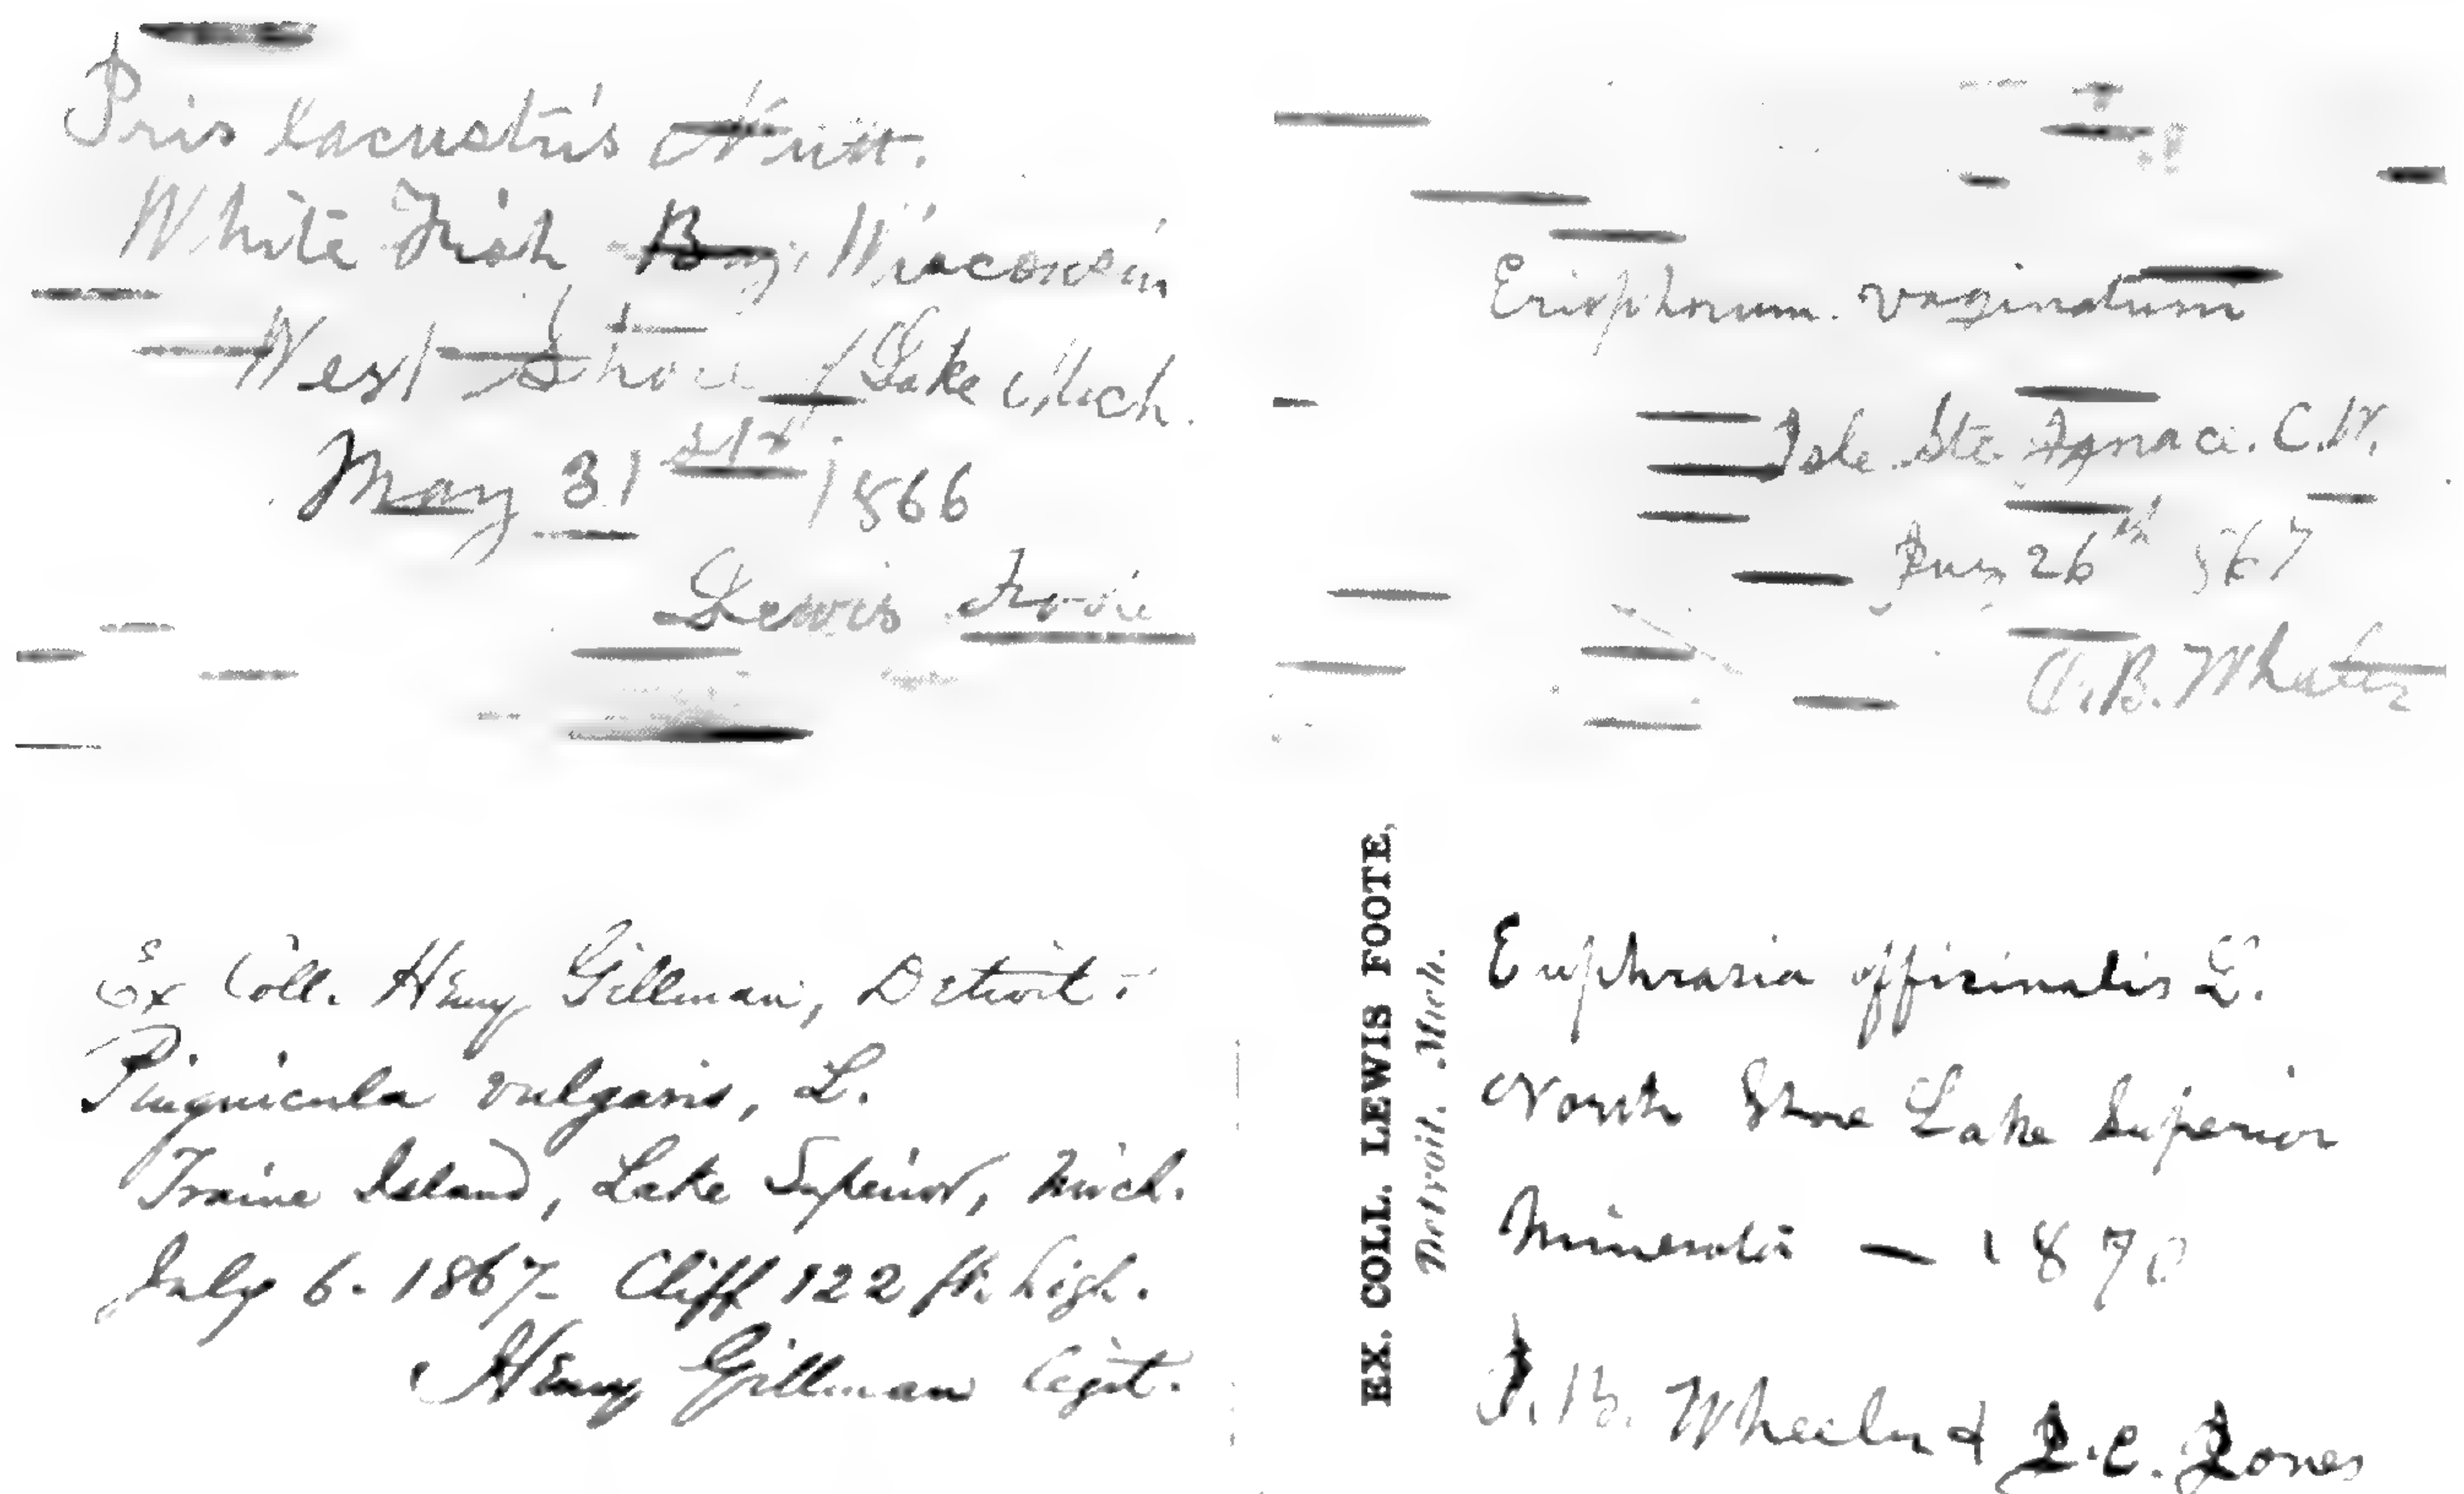 Iris lacustris Nutt.
White Fish Bay, Wisconsin
West Shore of Lake Mich.
May 31 1866
Lewis Foote
Eriophorum. vaginatum
Isle Ste Ignace. C.W.
26th 867
O. B. Wheeler
Ex Coll. Henry Gillman, Detroit.
Pinguicula vulgaris, L.
Traine Island, Lake Superior, Mich.
July 6. 1867 Cliff 122 ft. high.
Henry Gillman legit.
EX. COLL. LEWIS FOOTE,
Detroit. Mich.
Euphrasia officinalis L.
North Shore Lake Superior
Minnesota — 1870
O. B. Wheeler & Jones